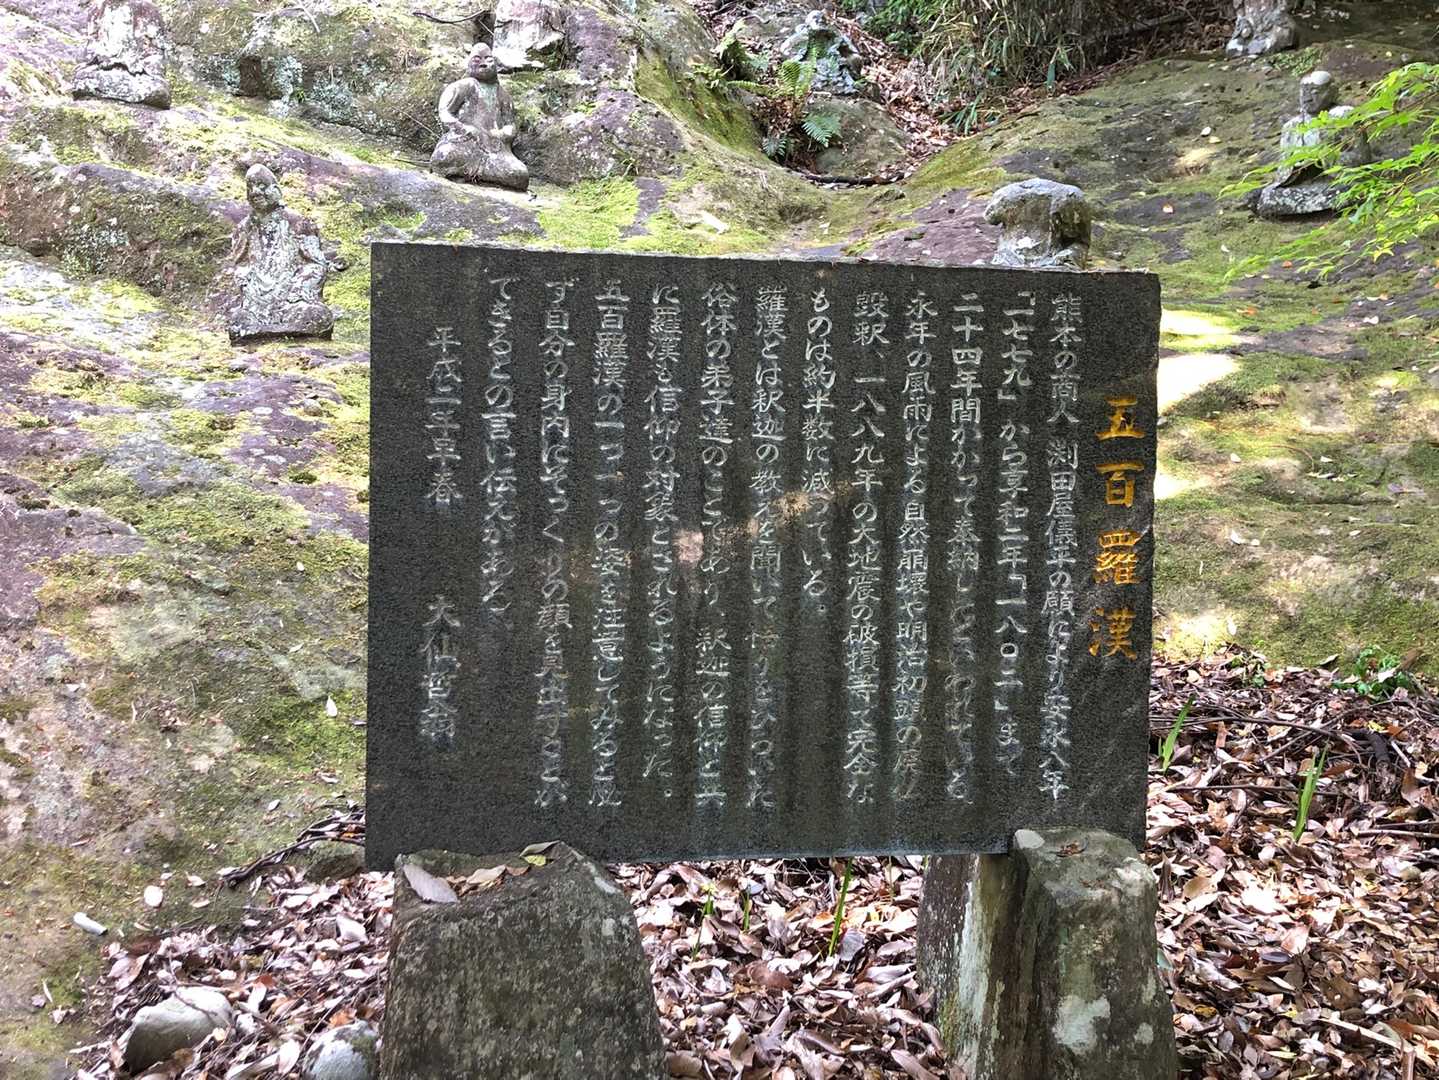 五百羅漢
熊本の商人 渕田屋儀平の願により安永八年
「一七七九」から享和二年「一八〇二」まで
二十四年間かかって奉納したといわれている。
永年の風雨による自然崩壊や明治初頭の廃仏
毀釈、一八八九年の大地震の破損等で完全な
ものは約半数に減っている。
羅漢とは釈迦の教えを聞いて悟りをひらいた
俗体の弟子達のことであり、釈迦の信仰と共
に羅漢も信仰の対象とされるようになった。
五百羅漢の一つ一つの姿を注意してみると必
ず自分の身内にそっくりの顔を見出すことが
できるとの言い伝えがある。
平成二年早春 大仙